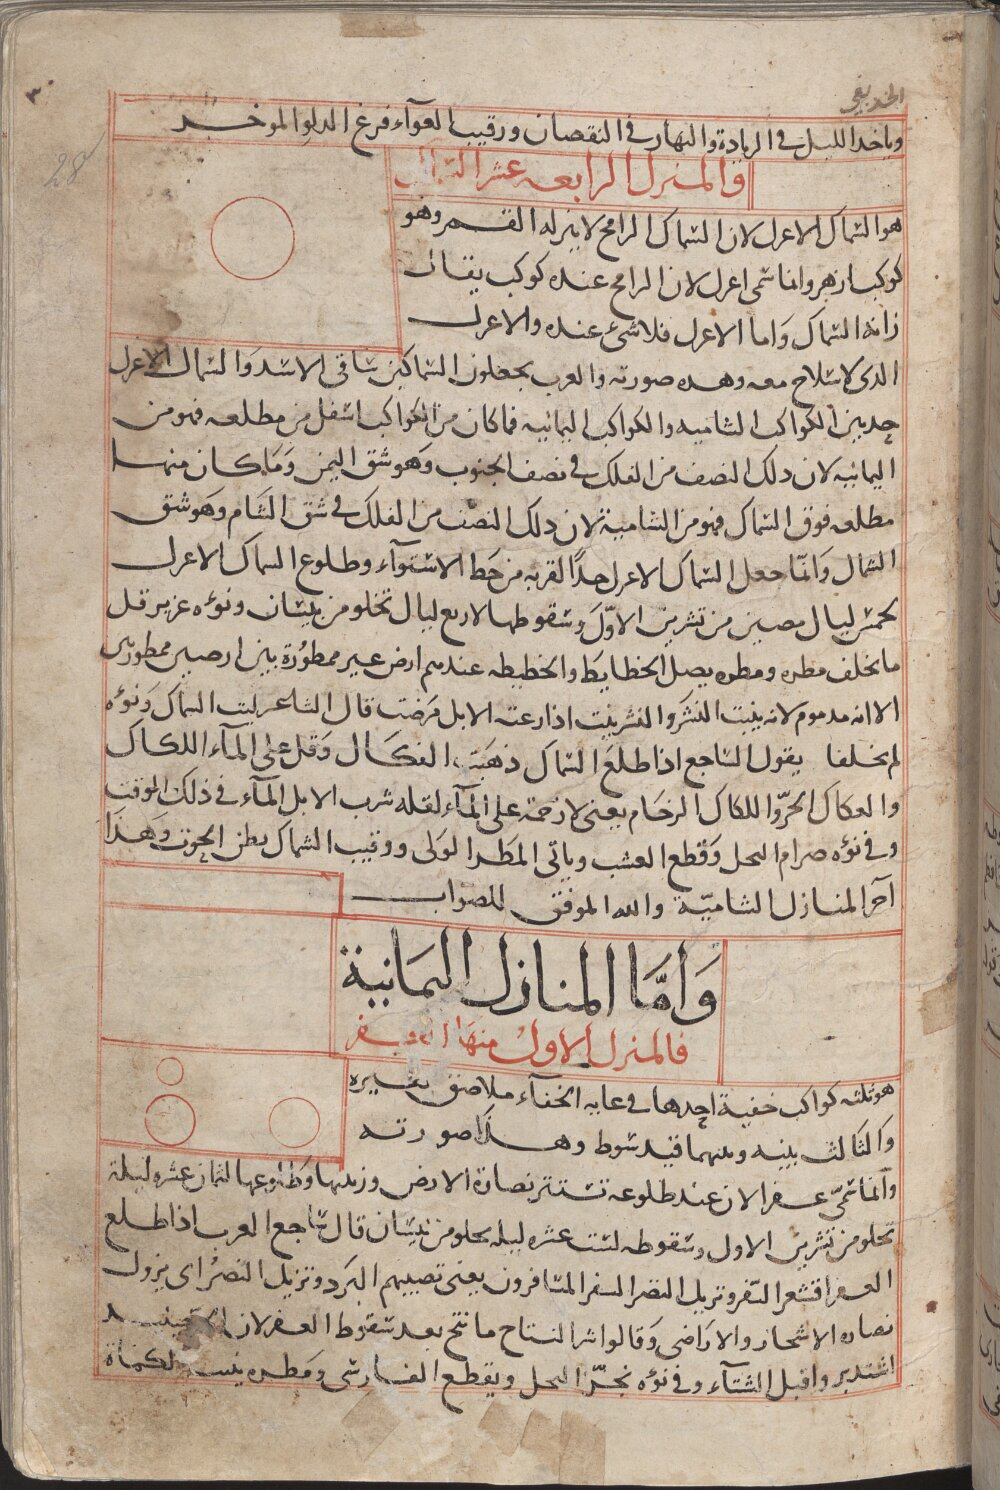 الخريفي
وياخد الليل في الزيادة والنهار في النقصان ورقيب العوآء فرغ الدلو الموخر
والمنزل الرابعه عشر السماك
هو السماك الاعزل لان السماك الرامح لا ينزله القمر وهو
كوكب ازهر وانما سمى اعزل لان الرامح عنده كوكب يقال
زانه السماك واما الاعزل فلا شئ عنده والاعزل
الدى لا سلاح معه وهده صورته والعرب يجعلون السماكين ساقى الاسد والسماك الاعزل
حد بين الكواكب الشاميه والكواكب اليمانيه فما كان من الكواكب اسفل من مطلعه فهو من
اليمانيه لان دلك النصف من الفلك في نصف الجنوب وهو شق اليمن وما كان منها
مطلعه فوق السماك فهو من الشامية لان دلك النصف من الفلك في شق الشام وهو شق
الشمال وانما جعل السماك الاعزل حدا لقربه من خط الاستوآء وطلوع السماك الاعزل
لخمس ليال مضين من تشرين الاول وسقوطها لاربع ليال تخلو من نيسان ونوءه غزير قل
ما يخلف مطره ومطره يصل الخطايط والخطيطه عندهم ارض غير ممطورة بين ارضين ممطورتين
الا انه مدموم لانه ينبت النشر والنشر نبت اذا رعته الابل مرضت قال الشاعر ليت السماك ونوءه
لم يخلفا يقول الساجع اذا طلع السماك ذهبت العكال وقل على المآء اللكاك
والعكاك الحر واللكاك الزحام يعنى لا زحمة على المآء لقله شرب الابل المآء في ذلك الوقت
وفي نوءه صرام النحل وقطع العشب وياتى المطر الولى ورقيب السماك بطن الحوت وهذا
آخر المنازل الشامية والله الموفق للصواب
وأما المنازل اليمانية
فالمنزل الاول منها الغفر
هو ثلثه كواكب خفية احدها في غايه الخفآء ملاصق بغيره
والثالث بينه وبينهما قيد سوط وهذا صورته
وانما سمى غفرا لان عند طلوعه تستتر نضارة الارض وزينتها وطلوعها لثمان عشره ليلة
تخلو من تشرين الاول وسقوطه لست عشره ليله يخلو من نيسان قال ساجع العرب اذا طلع
الغفر اقشعر السفر وتربل النضر السفر المسافرون يعنى تصيبهم البرد وتزيل النضر اى يزول
نضاره الاشجار والاراضى وقالوا شر النتاج ما نتج بعد سقوط الغفر لان
اشتد بر واقبل الشتآء وفي نوءه نجز النحل ويقطع القصب الفارسى ومطره ينبت الكمأة